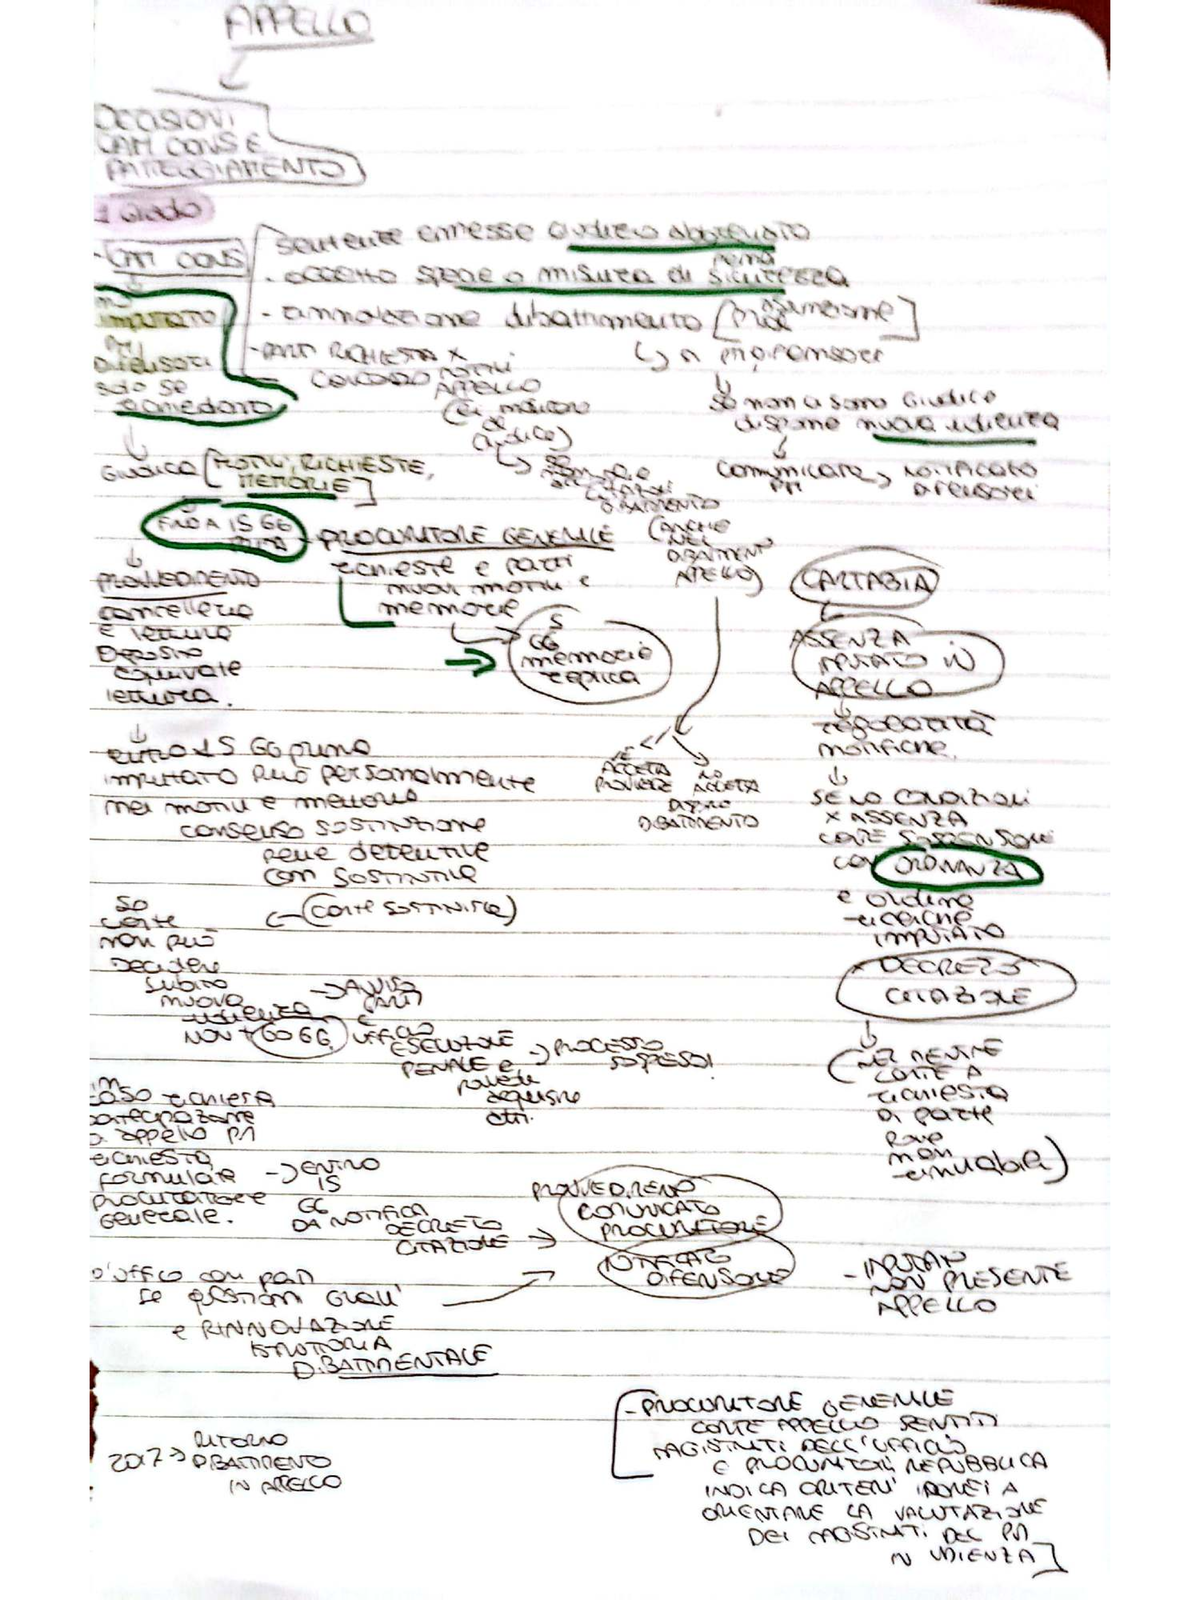 APPELLO
DECISIONI
CAM CONS E
PATTEGGIAMENTO
1 GRADO
- CAM CONS
no
imputato
PM
difensori
solo se
richiedono
sentenze emesse giudizio abbreviato
- oggetto specie o misura di sicurezza
pena
- rinnovazione dibattimento [prove
assunzione]
↳ a PM, difensori
↓
se non ci sono giudice
dispone nuova udienza
↓
comunicata → notificato
PM difensori
- PARTI RICHIESTA X
CONCORDATO MOTIVI
APPELLO
↓
GIUDICA [MOTIVI, RICHIESTE,
MEMORIE]
FINO A 15 GG
PRIMA
PROCURATORE GENERALE
richieste e parti
nuovi motivi e
memorie
5
GG
memorie
replica
(ANCHE
NEL
DIBATTIMENTO
APPELLO)
↓
PROVVEDIMENTO
cancelleria
e lettura
Deposito
equivale
lettura.
SE
ACCETTA
PROVVEDE
NO
ACCETTA
DISPONE
DIBATTIMENTO
CARTABIA
ASSENZA
IMPUTATO IN
APPELLO
↓
regolarità
notifiche.
↓
SE NO CONDIZIONI
X ASSENZA
CORTE SOSPENSIONE
CON ORDINANZA
e ordina
ricerche
IMPUTATO
X DECRETO
CITAZIONE
↓
(NEL MENTRE
CORTE A
richiesta
di parte
prove
non
rinviabili)
↓
entro 15 GG prima
imputato può personalmente
nei motivi e memorie
consenso sostituzione
pene detentive
con SOSTITUTIVE
← (CORTE SOSTITUISCE)
SE
corte
non può
decidere
subito
nuova
udienza
NON + 60 GG.
→ AVVISO
PARTI
E
UFFICIO
ESECUZIONE
PENALE e
può
acquisire
atti.
→ PROCESSO
SOSPESO!
in
caso richiesta
partecipazione
di appello PM
richiesta
formulata
procuratore
generale.
→ ENTRO
15
GG
DA NOTIFICA
DECRETO
CITAZIONE →
PROVVEDIMENTO
COMUNICATO
PROCURATORE
NOTIFICATO
DIFENSORE
D'uffico con parti
se questioni gravi
e RINNOVAZIONE
ISTRUTTORIA
DIBATTIMENTALE
- IMPUTATO
NON PRESENTE
APPELLO
2017 → RITORNO
DIBATTIMENTO
IN APPELLO
[- PROCURATORE GENERALE
CORTE APPELLO SENTITI
MAGISTRATI DELL'UFFICIO
E PROCURATORI REPUBBLICA
INDICA CRITERI IDONEI A
ORIENTARE LA VALUTAZIONE
DEI MAGISTRATI DEL PM
IN UDIENZA]